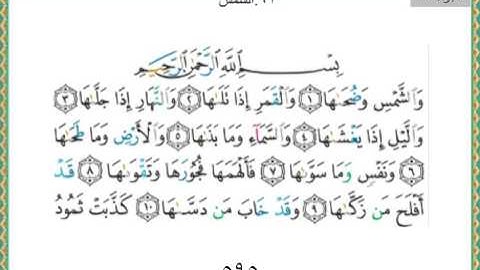 بِسْمِ اللَّهِ الرَّحْمَٰنِ الرَّحِيمِ
وَالشَّمْسِ وَضُحَىٰهَا ١ وَالْقَمَرِ إِذَا تَلَىٰهَا ٢ وَالنَّهَارِ إِذَا جَلَّىٰهَا ٣
وَاللَّيْلِ إِذَا يَغْشَىٰهَا ٤ وَالسَّمَآءِ وَمَا بَنَىٰهَا ٥ وَالْأَرْضِ وَمَا طَحَىٰهَا
٦ وَنَفْسٍ وَمَا سَوَّىٰهَا ٧ فَأَلْهَمَهَا فُجُورَهَا وَتَقْوَىٰهَا ٨ قَدْ
أَفْلَحَ مَن زَكَّىٰهَا ٩ وَقَدْ خَابَ مَن دَسَّىٰهَا ١٠ كَذَّبَتْ ثَمُودُ
٥٩٥